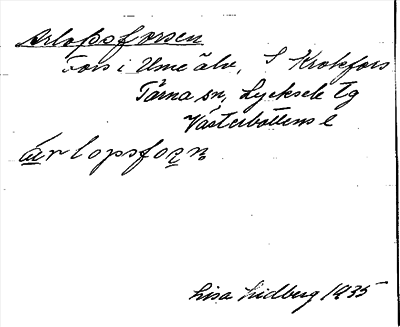 Årlopsforsen
Fors i Ume älv, S Krokfors
Tärna sn, Lycksele tg
Västerbottens l
årlopsfors̩n̩
Lisa Lidberg 1935